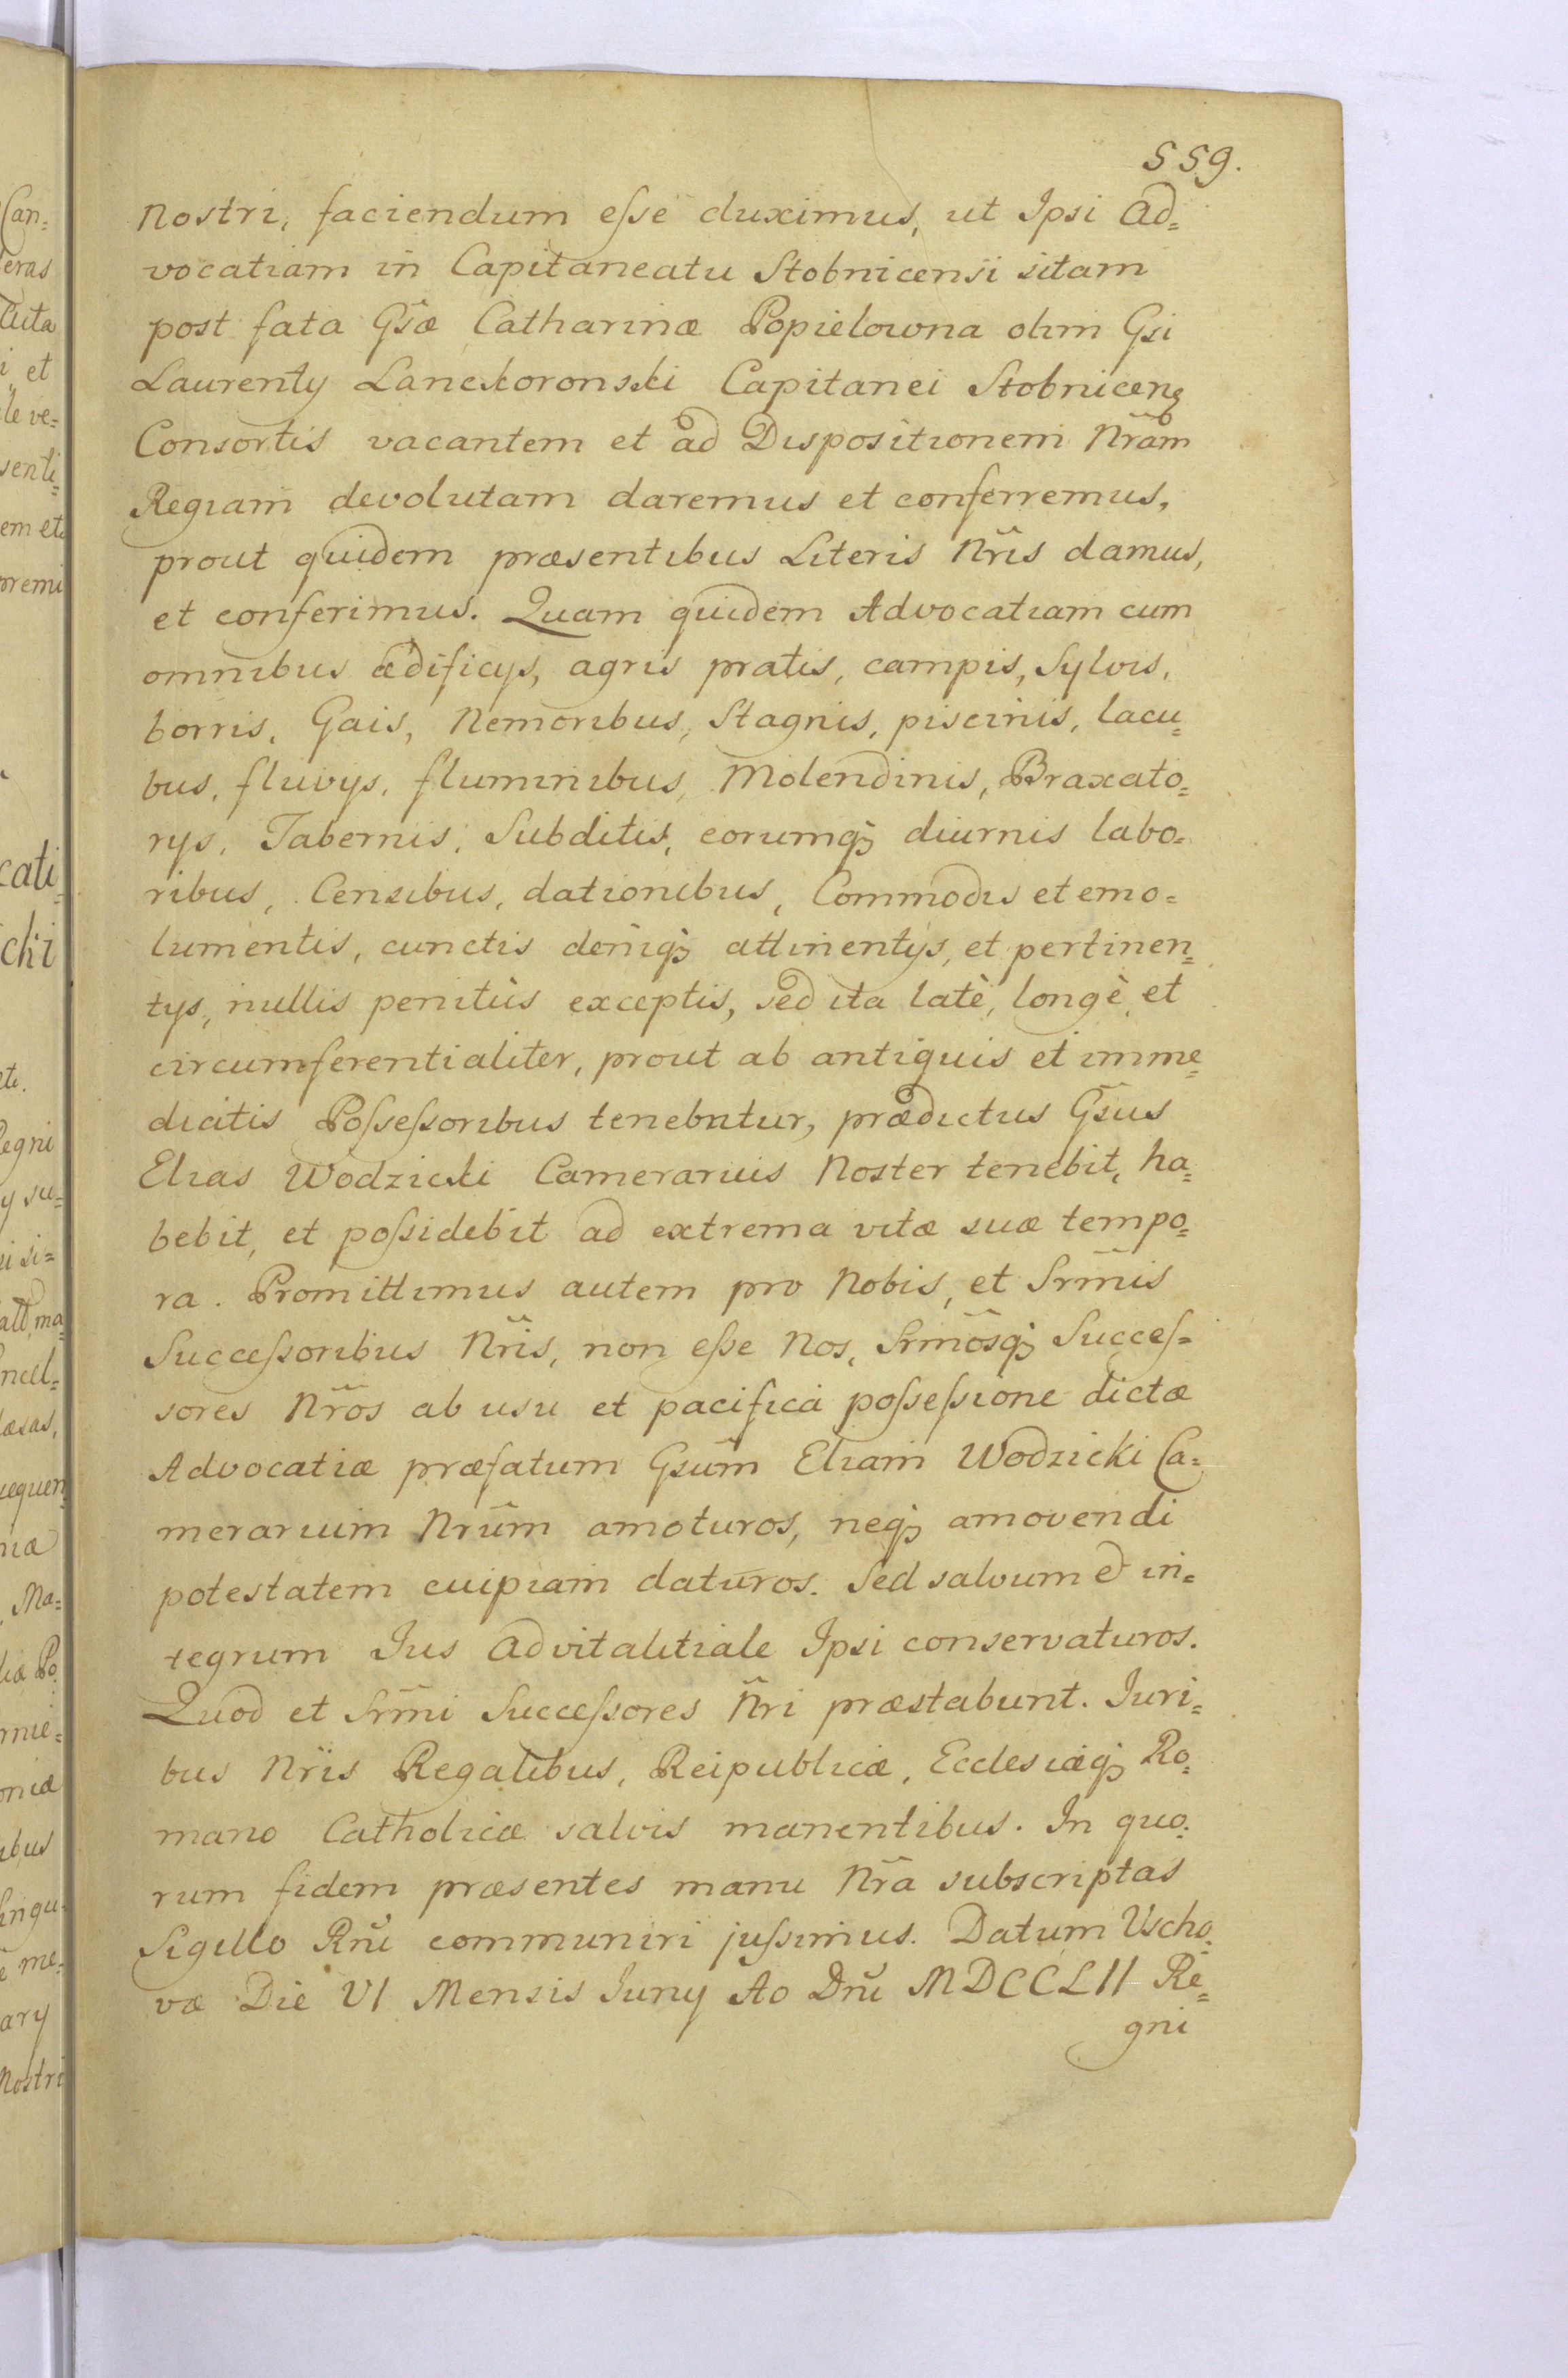 559.
Nostri, faciendum eſse duximus, ut Ipsi Ad=
vocatiam in Capitaneatu Stobnicensi sitam
post fata Gsæ Catharinæ Popielowna olim Gsi
Laurenty Lanckoronski Capitanei Stobnicenꝫ
Consortis vacantem et ad Dispositionem Nrãm
Regiam devolutam daremus et conferremus,
prout quidem præsentibus Literis Nrĩs damus,
et conferimus. Quam quidem Advocatiam cum
omnibus ædificys, agris pratis, campis, Sylvis,
borris, Gais, Nemoribus, Stagnis, piscinis, lacu=
bus, fluvys, fluminibus, Molendinis, Braxato=
rys, Tabernis, Subditis, eorumqꝫ diurnis labo=
ribus, Censibus, dationibus, Commodis et emo=
lumentis, cunctis deniqꝫ attinentys, et pertinen=
tys, nullis penitùs exceptis, sed ita latè, longè, et
circumferentialiter, prout ab antiquis et imme=
diatis Poſseſsoribus tenebatur, prædictus Gsus
Elias Wodzicki Camerarius Noster tenebit, ha=
bebit, et poſsidebit ad extrema vitæ suæ tempo=
ra. Promittimus autem pro Nobis, et Srm̃is
Succeſsoribus Nrĩs, non eſse Nos, Srm̃osqꝫ Succeſ=
sores Nrõs ab usu et pacifica poſseſsione dictæ
Advocatiæ præfatum Gsum̃ Eliam Wodzicki Ca=
merarium Nrũm amoturos, neqꝫ amovendi
potestatem cuipiam daturos. Sed salvum & in=
tegrum Jus Advitalitiale Ipsi conservaturos.
Quod et Srm̃i Succeſsores Nr̃i præstabunt. Juri=
bus Nrĩs Regalibus, Reipublicæ, Ecclesiæqꝫ Ro=
mano Catholicæ salvis manentibus. In quo=
rum fidem præsentes manu Nrã subscriptas
Sigillo Rni communiri juſsimus. Datum Uscho=
væ Die VI Mensis Juny Ao Dni MDCCLII Re=
gni